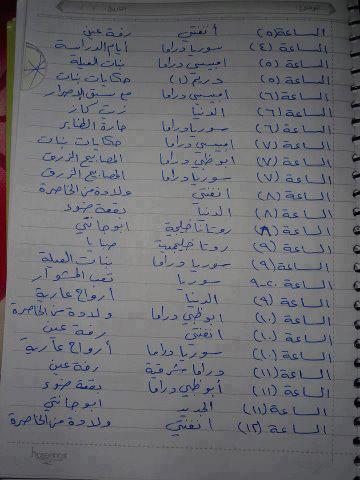 الموضوع: التاريخ:
الساعة (٥) أنفنتي رفة عين
الساعة (٤) سوريا دراما أيام الدراسة
الساعة (٥) امبسي دراما بنات العيلة
الساعة (٥) دريم (١) حكايات بنات
الساعة (٦) امبسي دراما مع سبق الإصرار
الساعة (٦) الدنيا زنت كمار
الساعة (٦) سوريا دراما حارة الطنابر
الساعة (٧) امبسي دراما حكايات بنات
الساعة (٧) أبوظبي دراما المصابيح الزرق
الساعة (٧) سوريا دراما المصابيح الزرق
الساعة (٨) انفنتي ولادة من الخاصرة
الساعة (٨) الدنيا بقعة ضوء
الساعة (٨) روتانا خليجية ابو جانتي
الساعة (٩) روتا خليجية صبايا
الساعة (٩) سوريا دراما بنات العيلة
الساعة ٩،٣٠ سوريا تعب المشوار
الساعة (٩) الدنيا أرواح عارية
الساعة (١٠) ابوظبي دراما ولادة من الخاصرة
الساعة (١٠) انفنتي رفة عين
الساعة (١٠) سوريا دراما أرواح عارية
الساعة (١١) دراما شرقية رفة عين
الساعة (١١) أبوظبي دراما بقعة ضوء
الساعة (١١) الجديد ابو جانتي
الساعة (١٢) انفنتي ولادة من الخاصرة